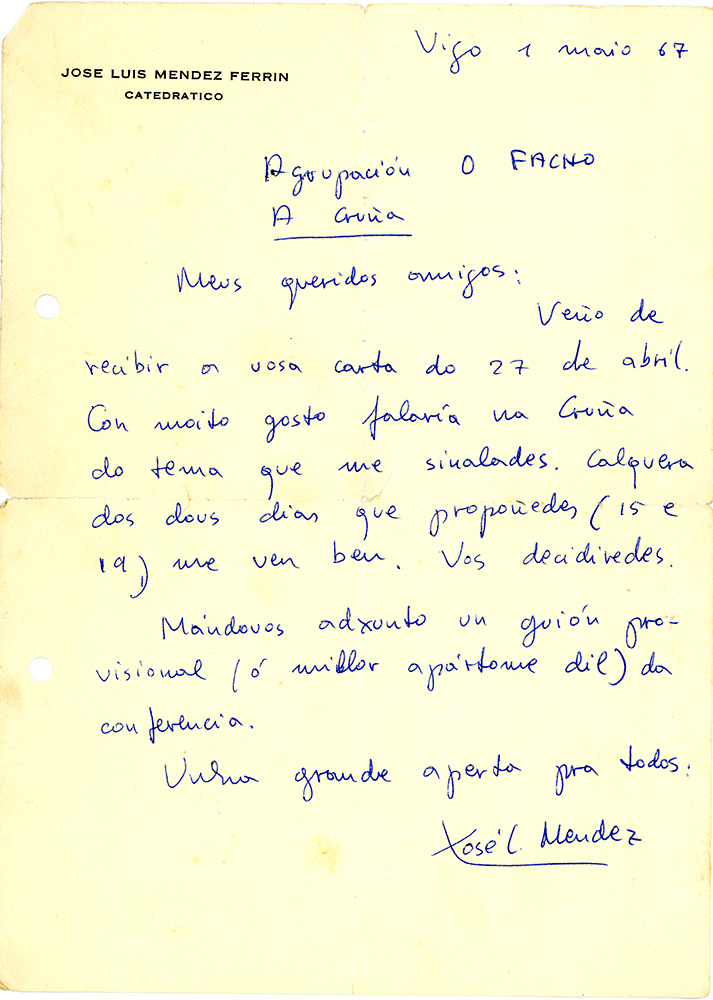 Vigo 1 maio 67
JOSE LUIS MENDEZ FERRIN
CATEDRATICO
Agrupación O FACHO
A Cruña
Meus queridos amigos:
Veño de
recibir a vosa carta do 27 de abril.
Con moito gosto falaría na Cruña
do tema que me sinalades. Calquera
dos dous dias que propoñedes (15 e
19) me ven ben. Vos decidiredes.
Mándovos adxunto un guión pro-
visional (ó millor apártome dil) da
conferencia.
Unha grande aperta pra todos:
Xosé L. Mendez